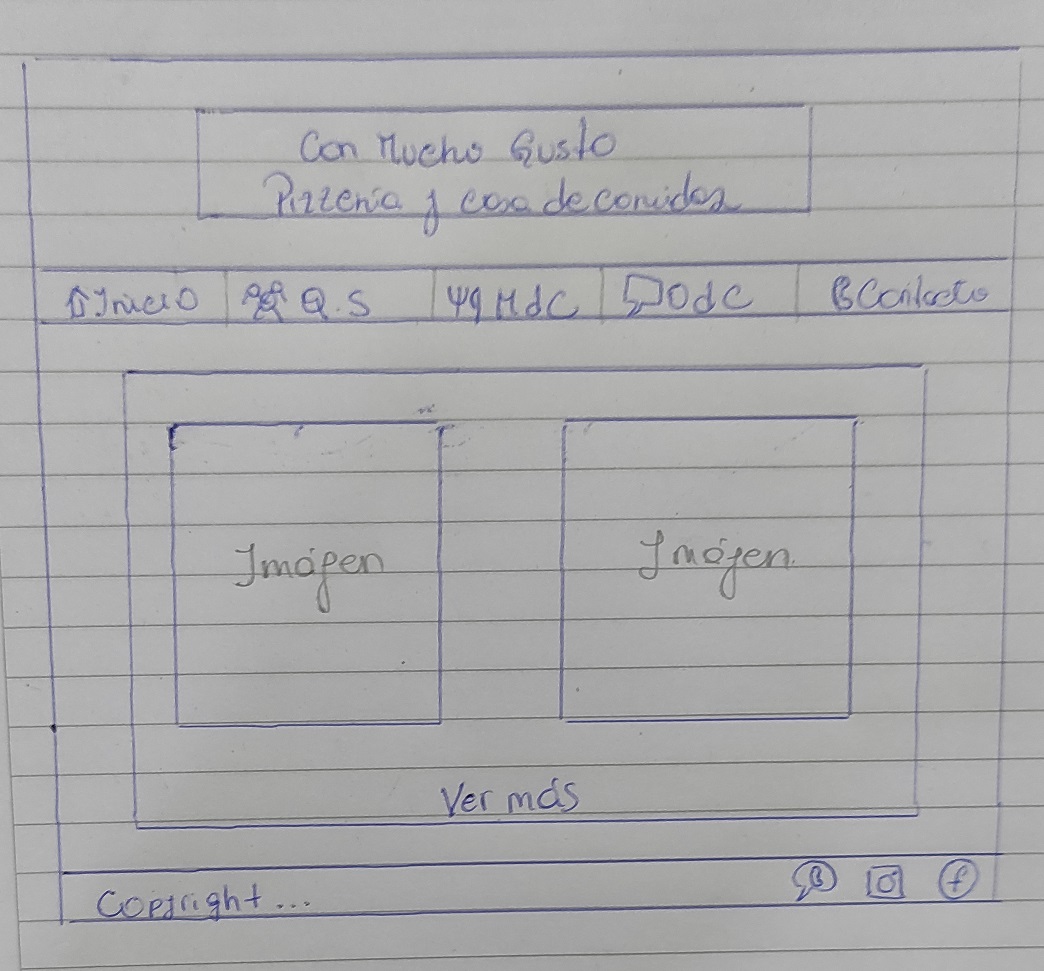 Con Mucho Gusto
Pizzería y casa de comidas
Inicio Q.S MdC OdC Contacto
Imágen Imágen
Ver más
Copyright...